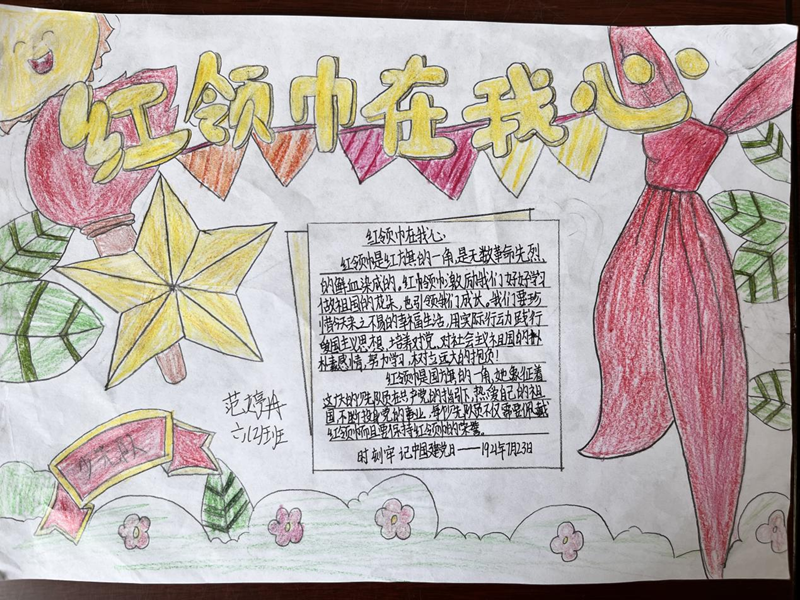 红领巾在我心
红领巾在我心
红领巾是红旗的一角,是无数革命先烈
的鲜血染成的,红领巾激励我们好好学习
做祖国的花朵,也引领我们成长。我们要珍
惜今天来之不易的幸福生活,用实际行动践行
爱国主义思想,培养对党、对社会主义祖国的朴
朴素感情,努力学习,树立远大的抱负!
红领巾是国旗的一角,她象征着
这大的少年队员在共产党的指引下,热爱自己的祖
国,不断投身党的事业,每个少年队员不仅需要佩戴
红领巾而且要保持红领巾的荣誉。
时刻牢记中国建党日——1921年7月23日
范婷冉
六(2)班
少先队